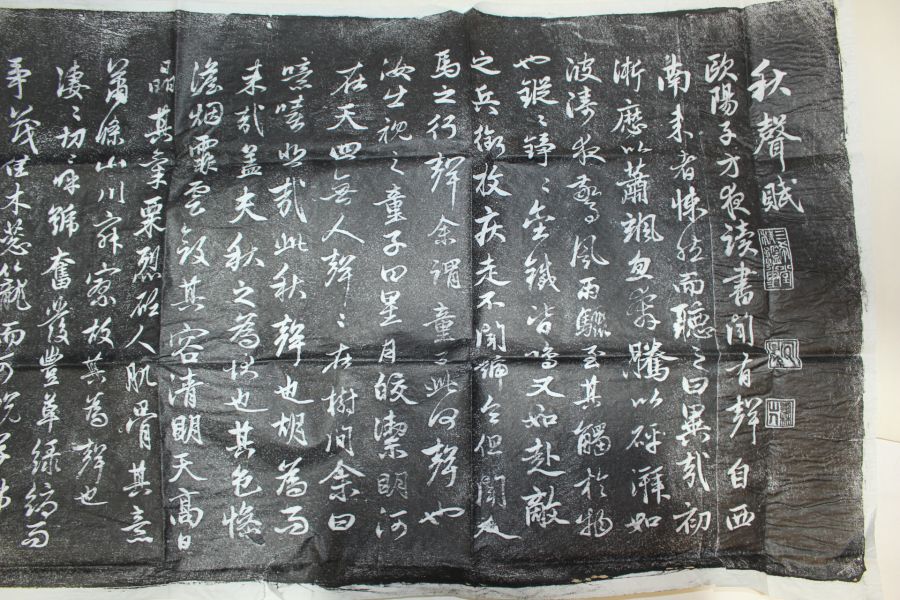 秋聲賦
歐陽子方夜讀書聞有聲自西
南来者悚然而聽之曰異哉初
淅歷以蕭颯忽奔騰以砰湃如
波濤夜驚風雨驟至其觸於物
也鏦〻錚〻金鐵皆鳴又如赴敵
之兵銜枚疾走不聞號令但聞人
馬之行聲余謂童子此何聲也
汝出視之童子曰星月皎潔明河
在天四無人聲〻在樹間余曰
噫嘻悲哉此秋聲也胡為而
来哉蓋夫秋之為狀也其色慘
澹烟霏雲斂其容清明天高日
晶其氣栗烈砭人肌骨其意
蕭條山川寂寥故其為聲也
淒〻切〻呼號奮發豐草綠縟而
爭茂佳木葱籠而可悅草